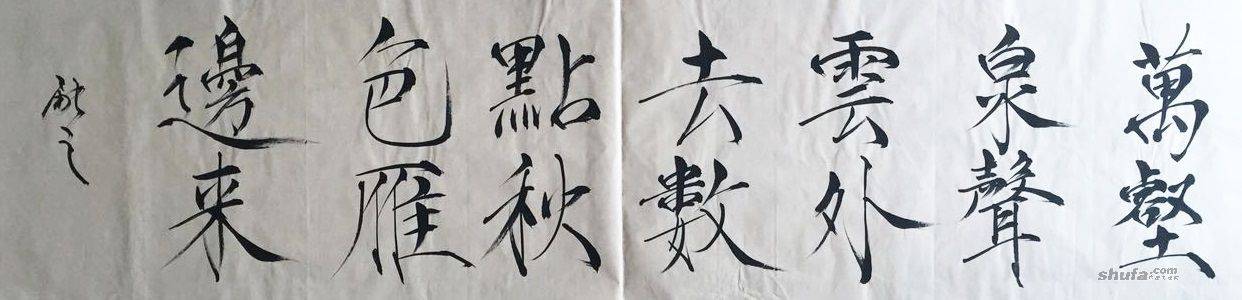 萬壑
泉聲
雲外
去數
點秋
色雁
邊来
shufa.com